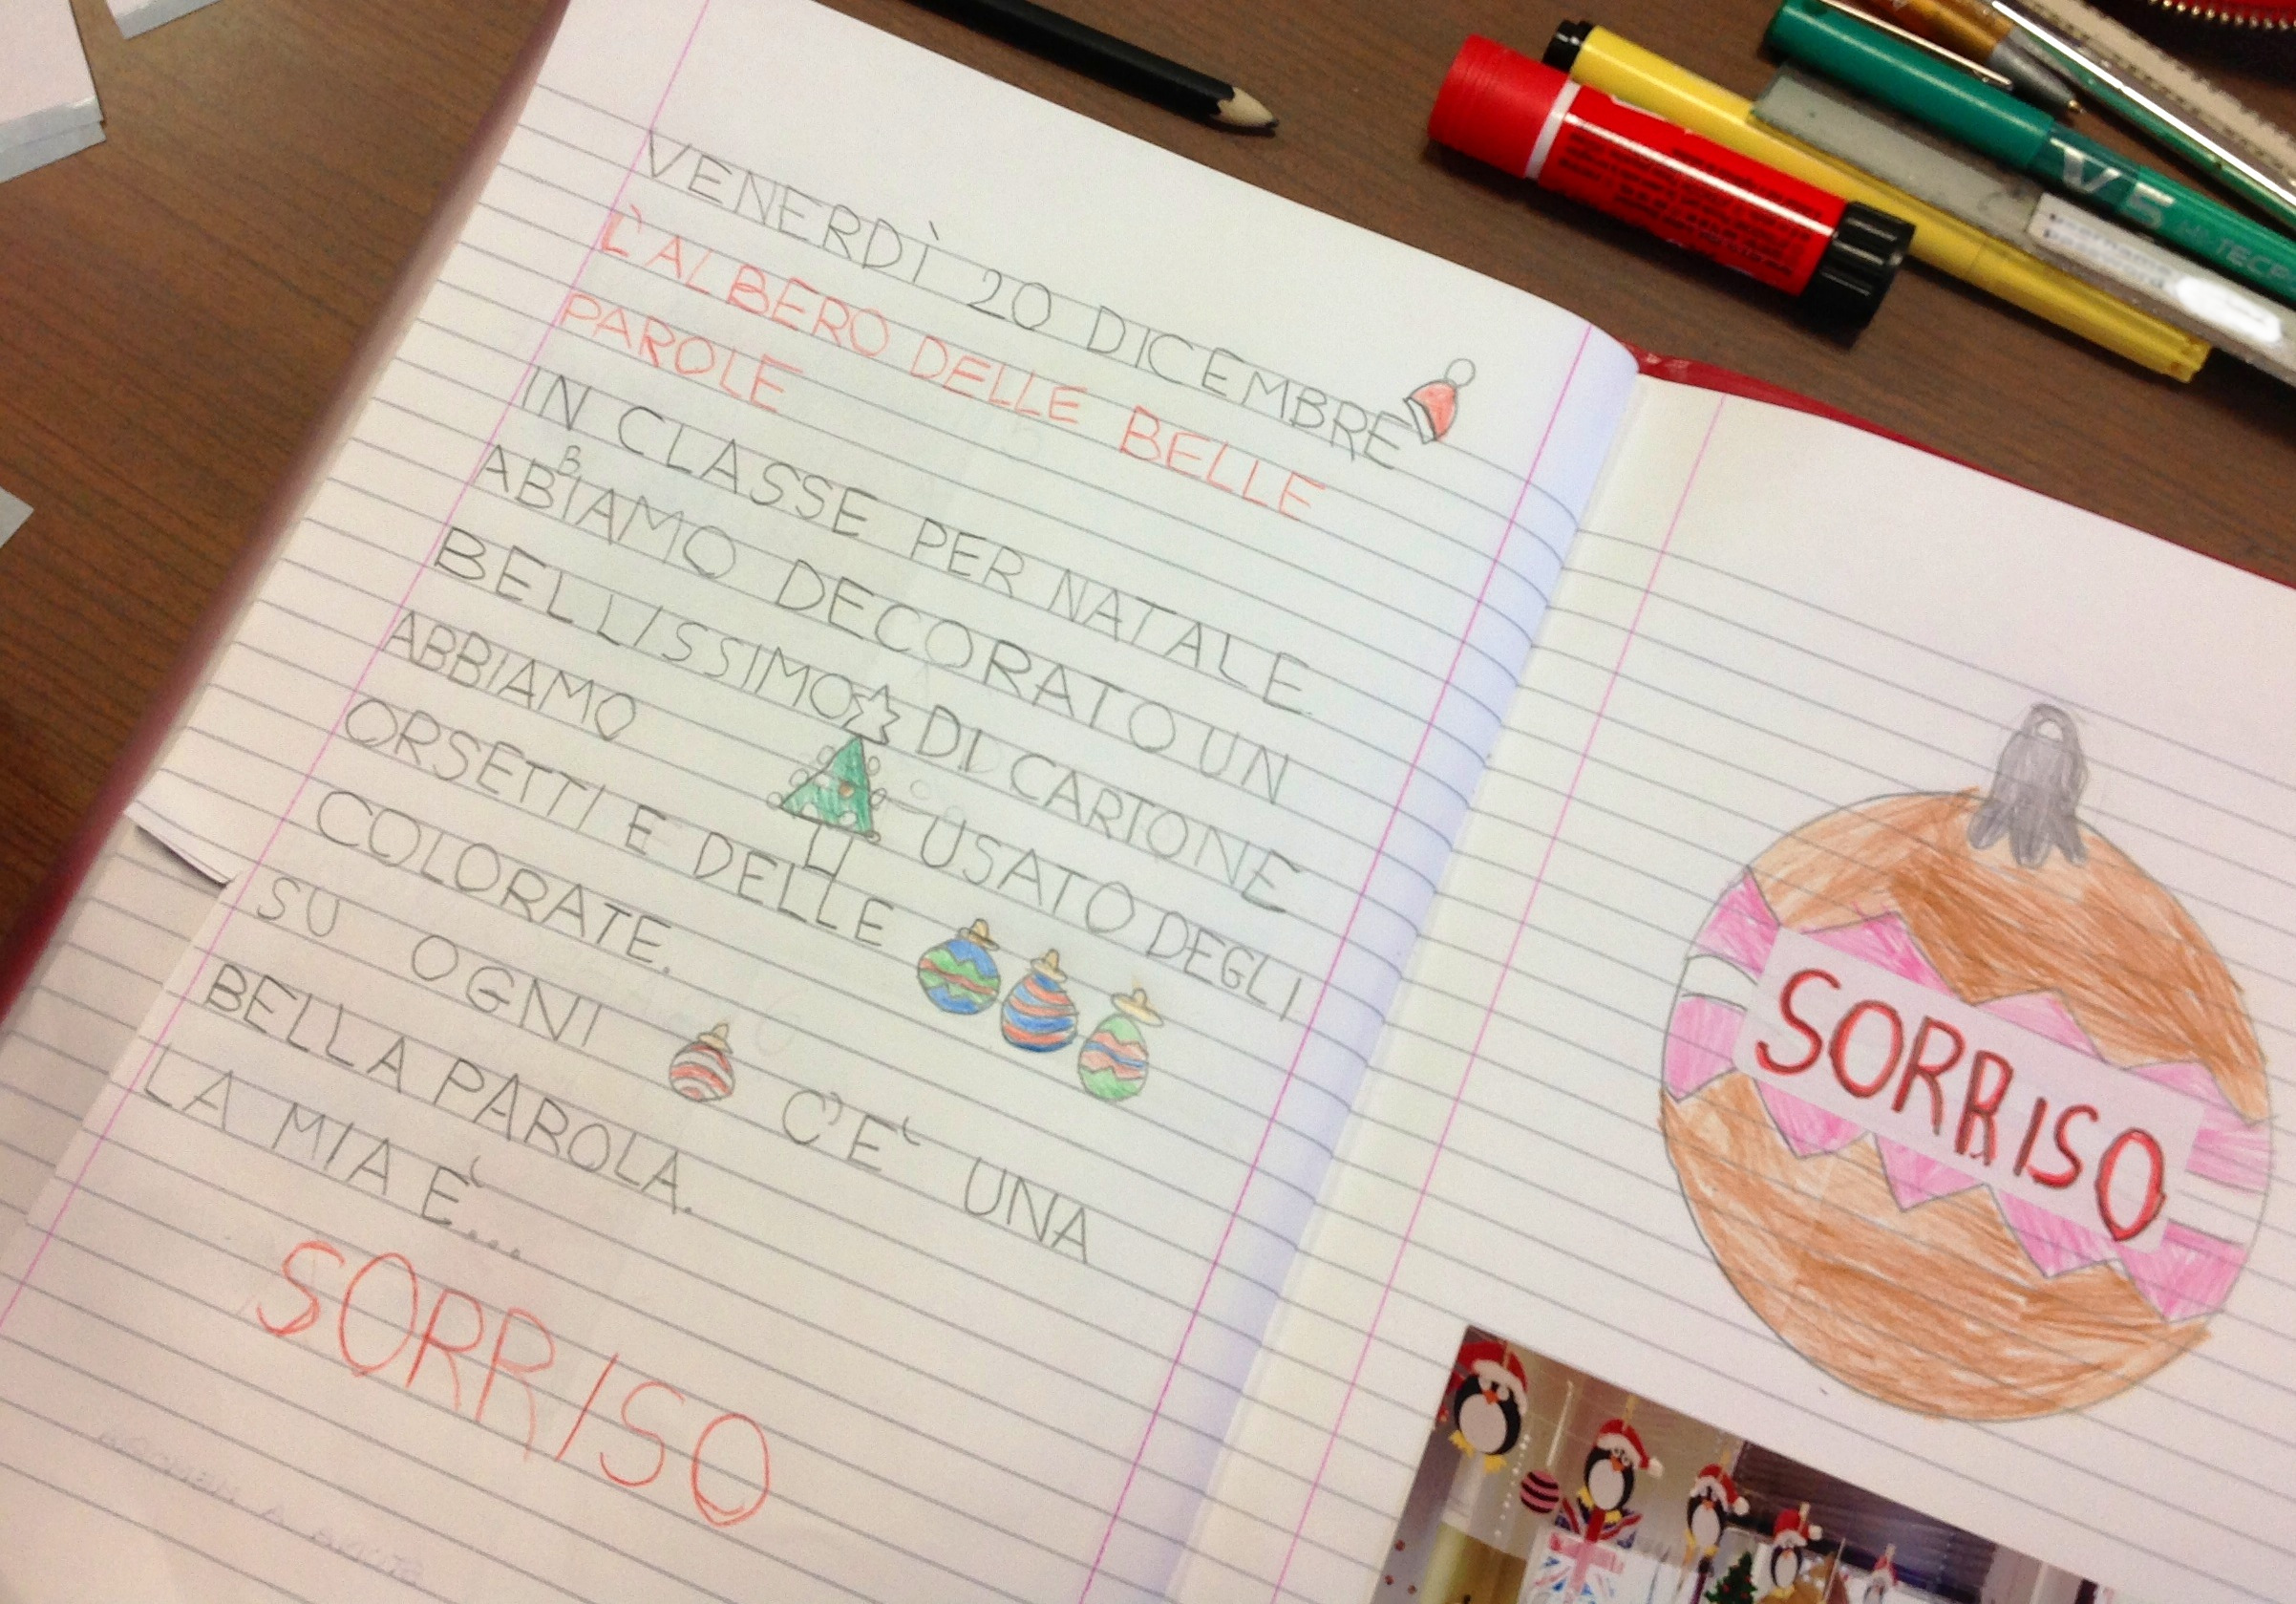 VENERDÌ 20 DICEMBRE
L'ALBERO DELLE BELLE
PAROLE
IN CLASSE PER NATALE
ABBIAMO DECORATO UN
BELLISSIMO DI CARTONE
ABBIAMO USATO DEGLI
ORSETTI E DELLE
COLORATE.
SU OGNI C'E' UNA
BELLA PAROLA.
LA MIA E'...
SORRISO
SORRISO
V5 HI-TECP